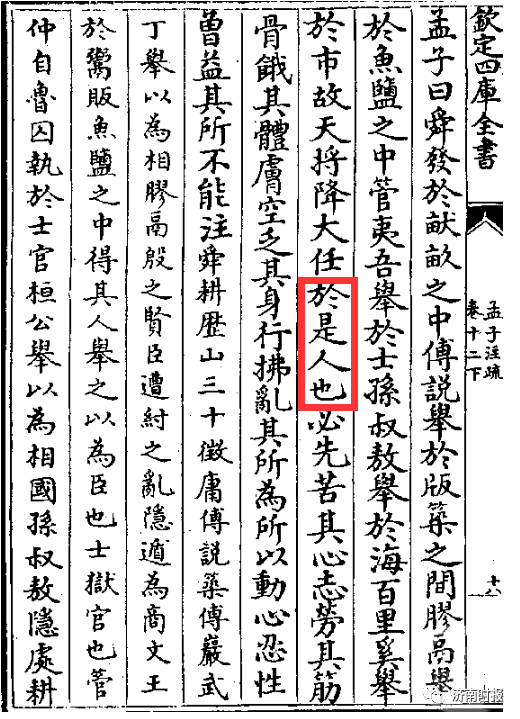 欽定四庫全書
孟子注疏
卷十二下
十六
孟子曰舜發於畎畝之中傅説舉於版築之間膠鬲舉
於魚鹽之中管夷吾舉於士孫叔敖舉於海百里奚舉
於市故天將降大任於是人也必先苦其心志勞其筋
骨餓其體膚空乏其身行拂亂其所為所以動心忍性
曾益其所不能注舜耕歴山三十徵庸傅説築傅巖武
丁舉以為相膠鬲殷之賢臣遭紂之亂隱遁為商文王
於鬻販魚鹽之中得其人舉之以為臣也士獄官也管
仲自魯囚執於士官桓公舉以為相國孫叔敖隱處耕
济南时报